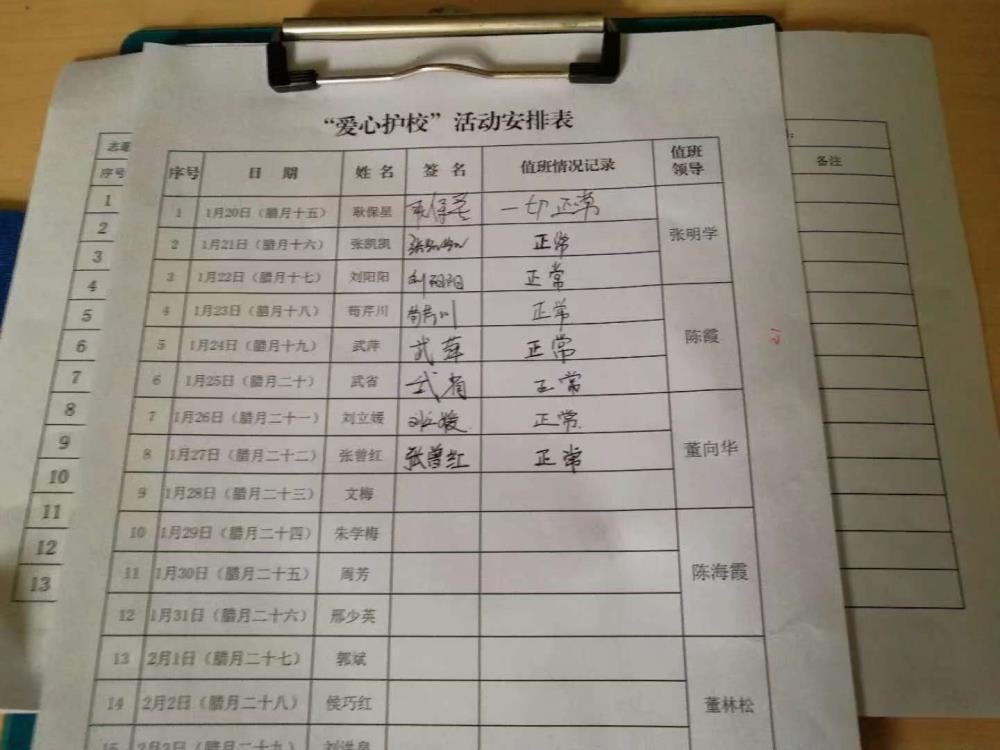 “爱心护校”活动安排表
序号 日 期 姓 名 签 名 值班情况记录 值班领导
1 1月20日（腊月十五） 耿保星 耿保星 一切正常 张明学
2 1月21日（腊月十六） 张凯凯 张凯凯 正常
3 1月22日（腊月十七） 刘阳阳 刘阳阳 正常
4 1月23日（腊月十八） 荀芹川 荀芹川 正常 陈霞
5 1月24日（腊月十九） 武萍 武萍 正常
6 1月25日（腊月二十） 武省 武省 正常
7 1月26日（腊月二十一） 刘立媛 刘立媛 正常. 董向华
8 1月27日（腊月二十二） 张曾红 张曾红 正常
9 1月28日（腊月二十三） 文梅
10 1月29日（腊月二十四） 朱学梅 陈海霞
11 1月30日（腊月二十五） 周芳
12 1月31日（腊月二十六） 邢少英
13 2月1日（腊月二十七） 郭斌 董林松
14 2月2日（腊月二十八） 侯巧红
15 2月3日（腊月二十九）
序号
1
2
3
4
5
6
7
8
9
10
11
12
13
备注
21